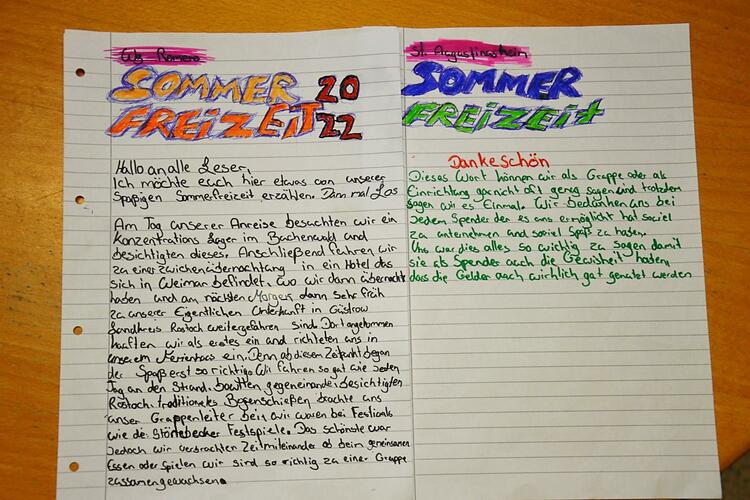 WG Romero
SOMMER 20
FREIZEIT 22
Hallo an alle Leser,
Ich möchte euch hier etwas von unserer
Spaßigen Sommerfreizeit erzählen. Dann mal Los
Am Tag unserer Anreise besuchten wir ein
Konzentrations lager im Buchenwald und
besichtigten dieses. Anschließend fuhren wir
zu einer zwichenübernachtung in ein Hotel das
sich in Weimar befindet. wo wir dann übernacht
haben und am nächsten Morgen dann sehr früh
zu unserer Eigentlichen Unterkunft in Güstrow
Landkreis Rostoch weitergefahren sind. Dort angekommen
kauften wir als erstes ein and richteten uns in
unserem Ferienhaus ein. Denn ab diesem Zeitpunkt began
der Spaß erst so richtig. Wir fuhren so gut wie Jeden
Tag an den Strand, bowlten gegeneinander, besichtigten
Rostoch, traditionelles Bogenschießen brachte uns
unser Gruppenleiter bei, wir waren bei Festivals
wie die Störtebecker Festspiele. Das schönste war
Jedoch wir verbrachten Zeit miteinander ob beim gemeinsamen
Essen oder Spielen wir sind so richtig zu einer Gruppe
zusammengewachsen.
St. Augustinusheim
SOMMER
FREIZEIT
Dankeschön
Dieses Wort können wir als Gruppe oder als
Einrichtung garnicht oft genug sagen und trotzdem
sagen wir es Einmal. Wir bedanken uns bei
Jedem Spender der es uns ermöglicht hat soviel
zu unternehmen und soviel Spaß zu haben.
Uns war dies alles so wichtig zu sagen damit
sie als Spender auch die Gewisheit haben,
dass die Gelder auch wirklich gut genutzt werden